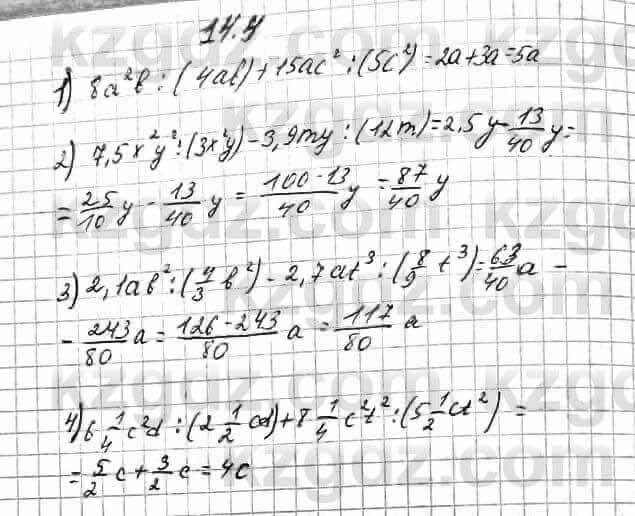 14.4
1) 8a²b : (4ab) + 15ac² : (5c²) = 2a + 3a = 5a
2) 7,5x²y² : (3x²y) - 3,9my : (12m) = 2,5y - 13/40 y =
= 25/10 y - 13/40 y = 100-13/40 y = 87/40 y
3) 2,1ab² : (4/3 b²) - 2,7at³ : (8/9 t³) = 63/40 a -
- 243/80 a = 126-243/80 a = 117/80 a
4) 6 1/4 c²d : (2 1/2 cd) + 8 1/4 c²t² : (5 1/2 ct²) =
= 5/2 c + 3/2 c = 4c
kzgdz.com